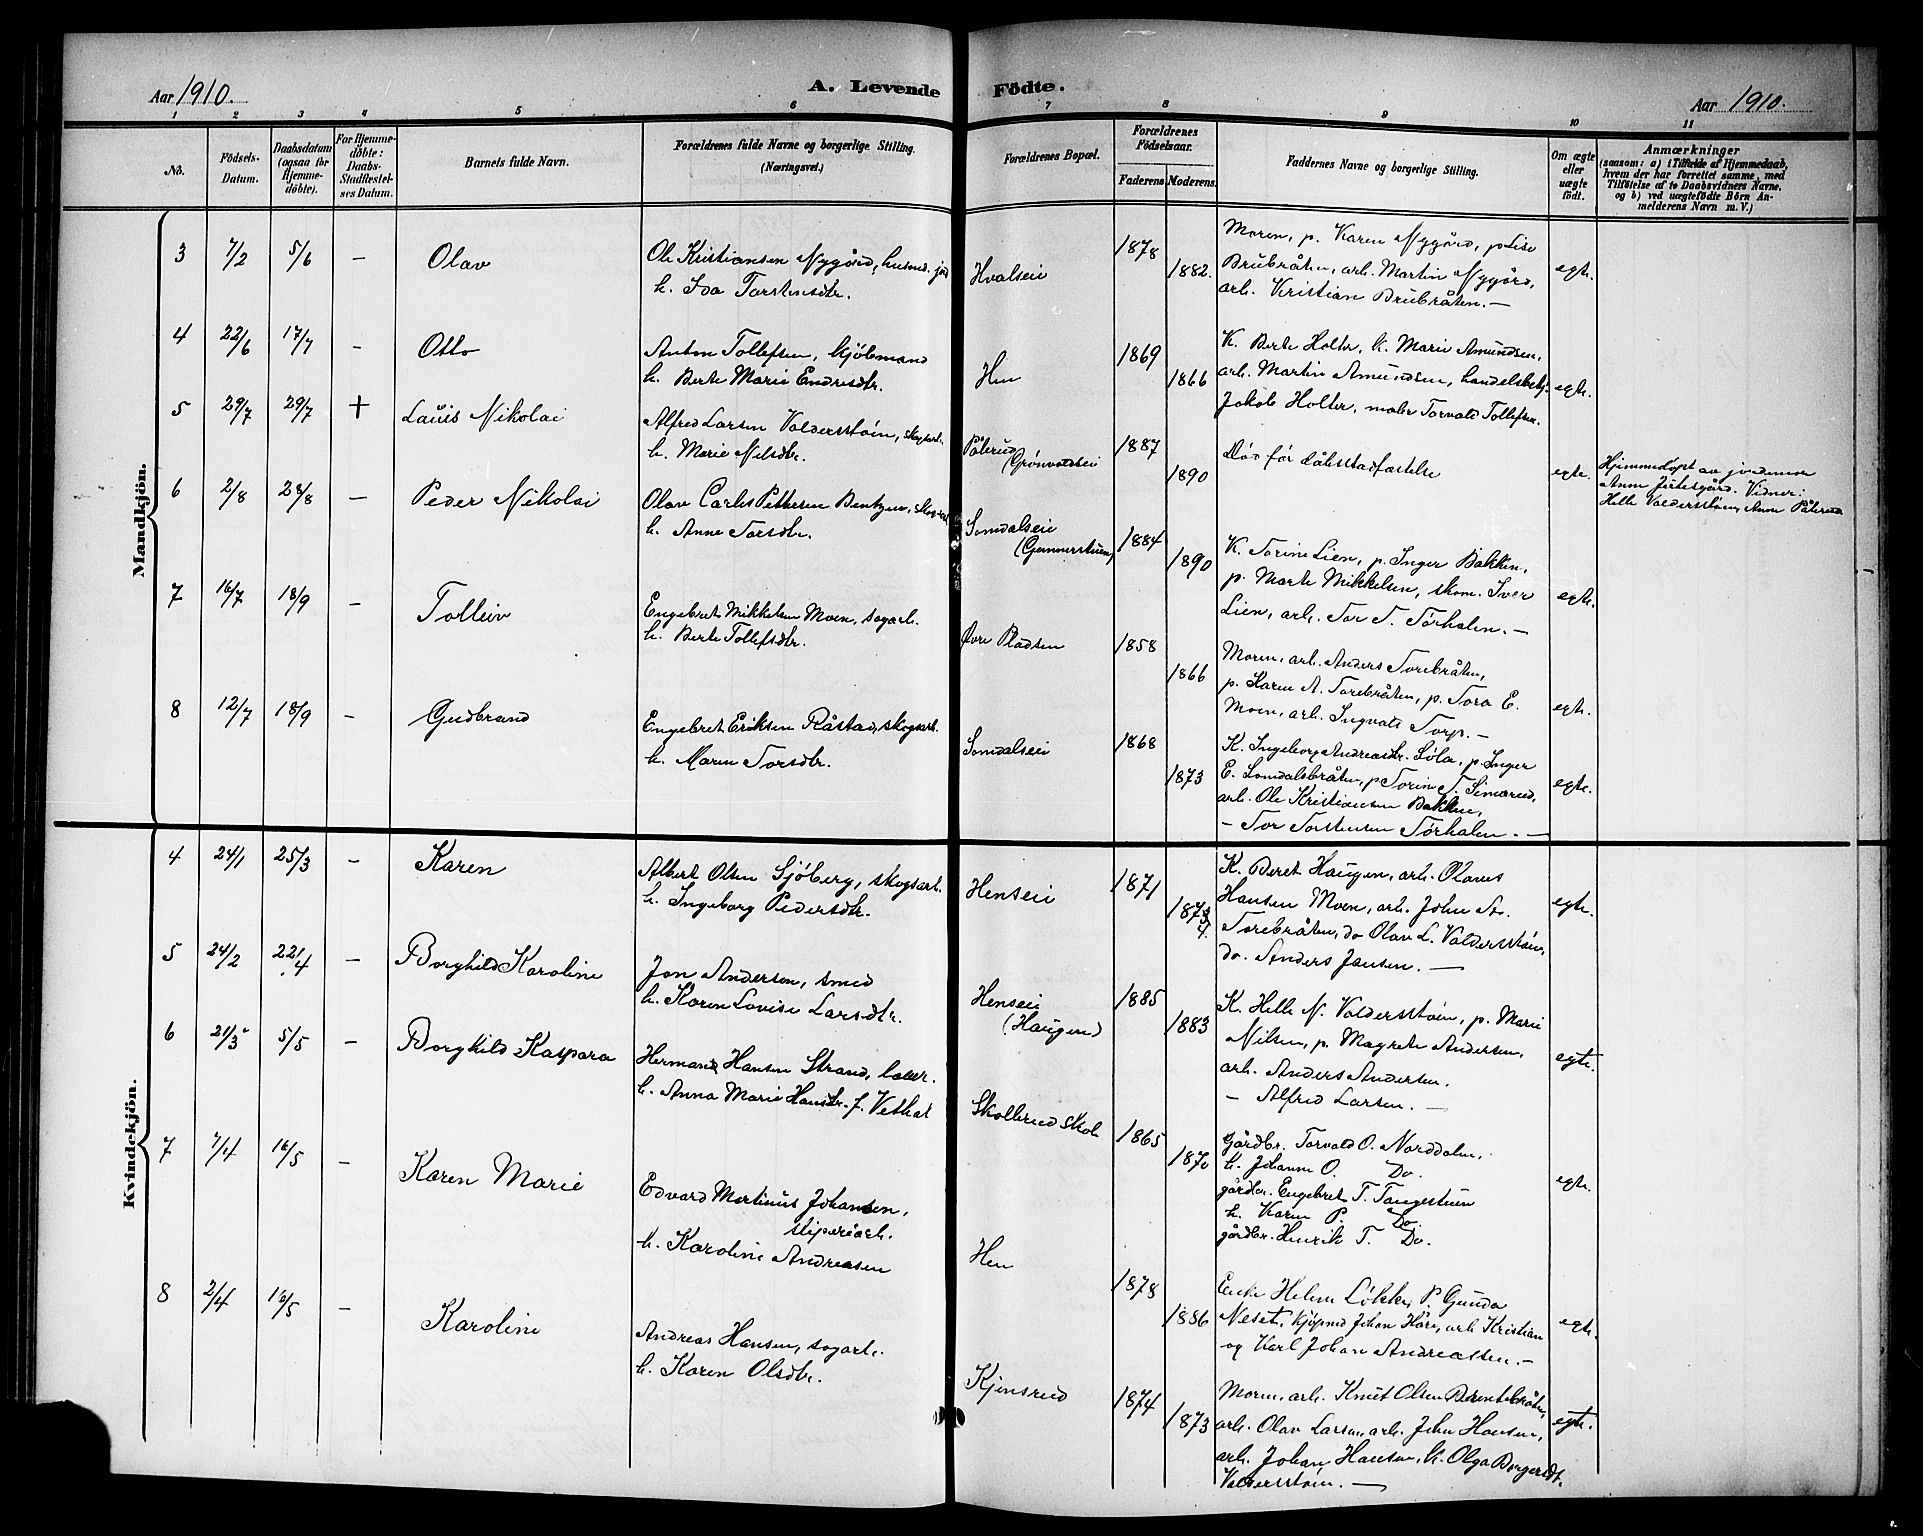 Aar 1910.
A. Levende
Födte.
Aar 1910.
1 2 3 4 5 6 7 8 9 10 11
No.
Födsels-
Datum.
Daabsdatum
(ogsaa for
Hjemme-
döbte).
For Hjemme-
döbte:
Daabs-
Stadfæstel-
ses Datum.
Barnets fulde Navn.
Forældrenes fulde Navne og borgerlige Stilling.
(Næringsvei.)
Forældrenes Bopæl.
Forældrenes
Födselsaar.
Faderens. Moderens.
Faddernes Navne og borgerlige Stilling.
Om ægte
eller
uægte
födt.
Anmærkninger
(saasom: a) i Tilfælde af Hjemmedaab,
hvem der har forrettet samme, med
Tilföielse af to Daabsvidners Navne,
og b) ved uægtefödte Börn An-
melderens Navn m. V.)
Mandkjön.
3 7/2 5/6 – Olav
Ole Kristiansen Nygård, husmd. jord
h. Ida Torstensdtr.
Hvalseie
1878
1882.
Moren, p. Karen Nygård, p Lise
Brubråten, arb. Martin Nygård,
arb. Kristian Brubråten. –
egte.
4 22/6 17/7 – Otto
Anton Tollefsen, kjöbmand
h. Berte Marie Endresdtr.
Hen
1869
1866
K. Berte Holter, k. Marie Amundsen,
arb. Martin Amundsen, handelsbetj.
Jakob Holter, maler Torvald Tollefsen.
egte.
5 29/7 29/7 + Lauis Nikolai
Alfred Larsen Valdersstøen, skogsarb.
h. Marie Nilsdtr.
Pålerud
(Grønvoldseie
1887
1890
Død før dåbsstadfæstelse
egte.
Hjemmedøpt av jordemor
Anne Jertesgård. Vidner:
Helle Valdersstøen, Anne Pålerud
6 2/8 28/8 – Peder Nikolai
Olav Carls Pettersen Bentzen, skogsarb
h. Anne Torsdtr.
Somdalseie
(Gunnerstuen)
1884
1890
K. Torine Lien, p. Inger Bakken,
p. Marte Mikkelsen, skom. Iver
Lien, arb. Tor T. Törhalen. –
egte.
7 16/7 18/9 – Tolleiv
Engebret Mikkelsen Moen, sagarb.
h. Berte Tollefsdtr.
Øvre Pladsen
1858
1866
Moren, arb. Anders Torebråten,
p. Karen A. Torebråten, p. Tora E.
Moen, arb. Ingvald Torp. –
egte.
8 12/7 18/9 – Gudbrand
Engebret Eriksen Råstad, skogsarb.
h. Maren Torsdtr.
Somdalseie
1868
1873
K. Ingeborg Andreasdtr. Löla, p. Inger
E. Somdalsbråten, p Torine T. Simarud,
arb. Ole Kristiansen Bakken,
– Tor Torstensen Törhalen. –
egte.
Kvindekjön.
4 24/1 25/3 – Karen
Albert Olsen Sjöberg, skogsarb.
h. Ingeborg Pedersdtr.
Henseie
1871
1873
4.
K. Beret Haugen, arb. Olaves
Hansen Moen, arb. John A.
Torebråten, do Olav L. Valdersstöen,
do. Anders Jansen. –
egte.
5 24/2 22/4 – Borghild Karoline
Jon Andersen, smed
h. Karen Lovise Larsdtr.
Henseie
(Haugen)
1885
1883
K. Helle N. Valdersstöen, p. Marie
Nilsen, p. Magrete Andersen,
arb. Anders Andersen.
– Alfred Larsen. –
egte.
6 21/3 5/5 – Borghild Kaspara
Herman Hansen Strand, lærer.
h. Anna Marie Hansdtr. f. Vethal
Skollerud skole
1865
1870
Gårdbr. Torvald O. Norddalen,
h. Johanne O. Do.
gårdbr. Engebret T. Tangestuen
h. Karen P. Do.
gårdbr. Henrik T. Do.
egte.
7 7/4 16/5 – Karen Marie
Edvard Martinus Johansen,
sliperiarb.
h. Karoline Andreasen
Hen
1878
1886
Enke Helene Løkken, P. Gunda
Neset, kjøpmd Johan Håre, arb Kristian
og Karl Johan Andreassen. –
egte.
8 2/4 16/5 – Karoline
Andreas Hansen, sagarb.
h. Karen Olsdtr.
Kjensrud
1874
1873
Moren, arb. Knut Olsen Berentsbråten,
arb. Olav Larsen, arb. John Hansen,
arb. Johan Hansen, k. Olga Borgersdt.
Valdersstöen. –
egte.